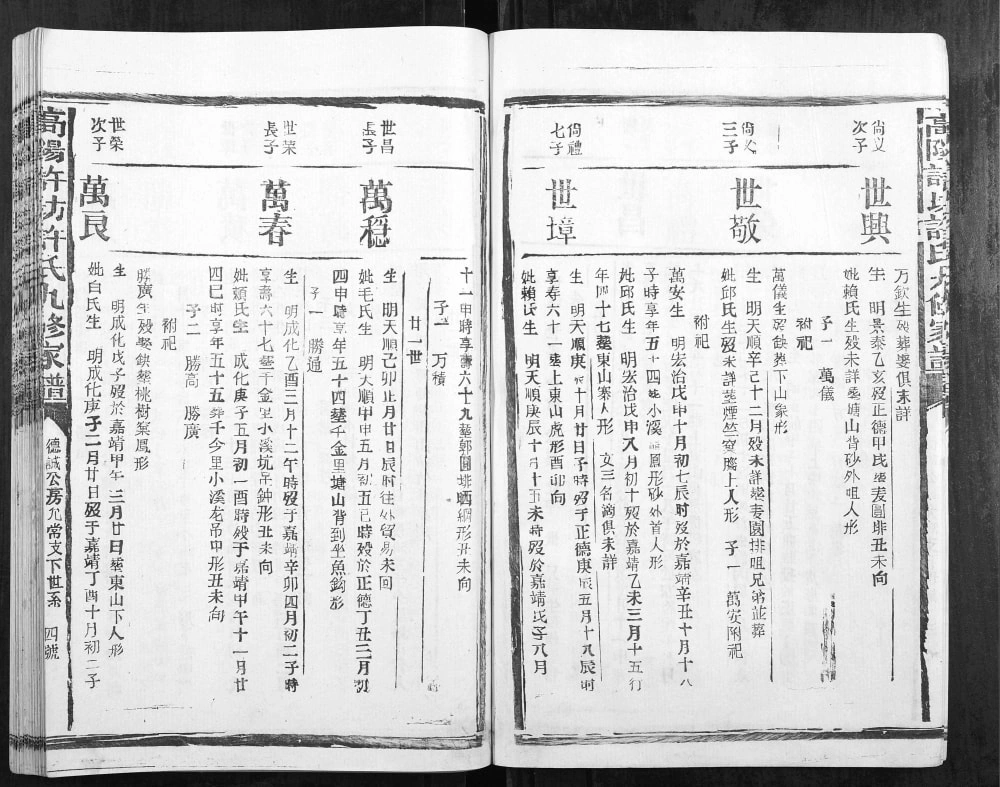 萬欽生歿葬娶俱未詳
尚义
次子
世興
生 明景泰乙亥歿正德甲戌葬麦園排丑未向
妣賴氏生歿未詳葬塘山背砂外咀人形
子一 萬儀
祔祀
萬儀生歿缺葬下山象形
尚义
三子
世敬
生 明天順辛巳十二月歿未詳葬麦園排咀兄弟並葬
妣邱氏生歿未詳葬煙竺窝腦上人形 子一 萬安附祀
祔祀
萬安生 明宏治戊申十月初七辰时歿於嘉靖辛丑十月十八
子時享年五十四葬小溪鳳形砂外首人形
妣邱氏生 明宏治戊申八月初十歿於嘉靖乙未三月十五行
年四十七塟東山寨人形 女三名適俱未詳
尚禮
七子
世璋
生 明天順庚辰十月廿日子时歿于正德庚辰五月十八辰时
享寿六十一葬上東山虎形酉卯向
妣賴氏生 明天順庚辰十月十五未時歿於嘉靖戊子八月
十一申時享壽六十九葬郭圓排晒網形丑未向
子一 万積
廿一世
世昌
長子
萬穩
生 明天順己卯正月廿日辰时往外贸易未回
妣毛氏生 明天順甲申五月初五巳時歿於正德丁丑二月初
四申時享年五十四塟千金里塘山背到坐魚鈎形
子一 勝通
世荣
長子
萬春
生 明成化乙酉三月十二午時歿于嘉靖辛卯四月初二子時
享壽六十七塟千金里小溪坑吊鈡形丑未向
妣賴氏生 成化庚子五月初一酉時歿于嘉靖甲午十一月廿
四巳时享年五十五葬千今里小溪龙吊甲形丑未向
子二 勝高 勝廣
祔祀
勝廣生歿娶缺葬桃樹窠鳳形
世榮
次子
萬良
生 明成化戊子歿於嘉靖甲午三月廿日塟東山下人形
妣白氏生 明成化庚子二月廿日歿于嘉靖丁酉十月初二子
高陽許坊許氏九修家譜
德誠公房九常支下世系 四號